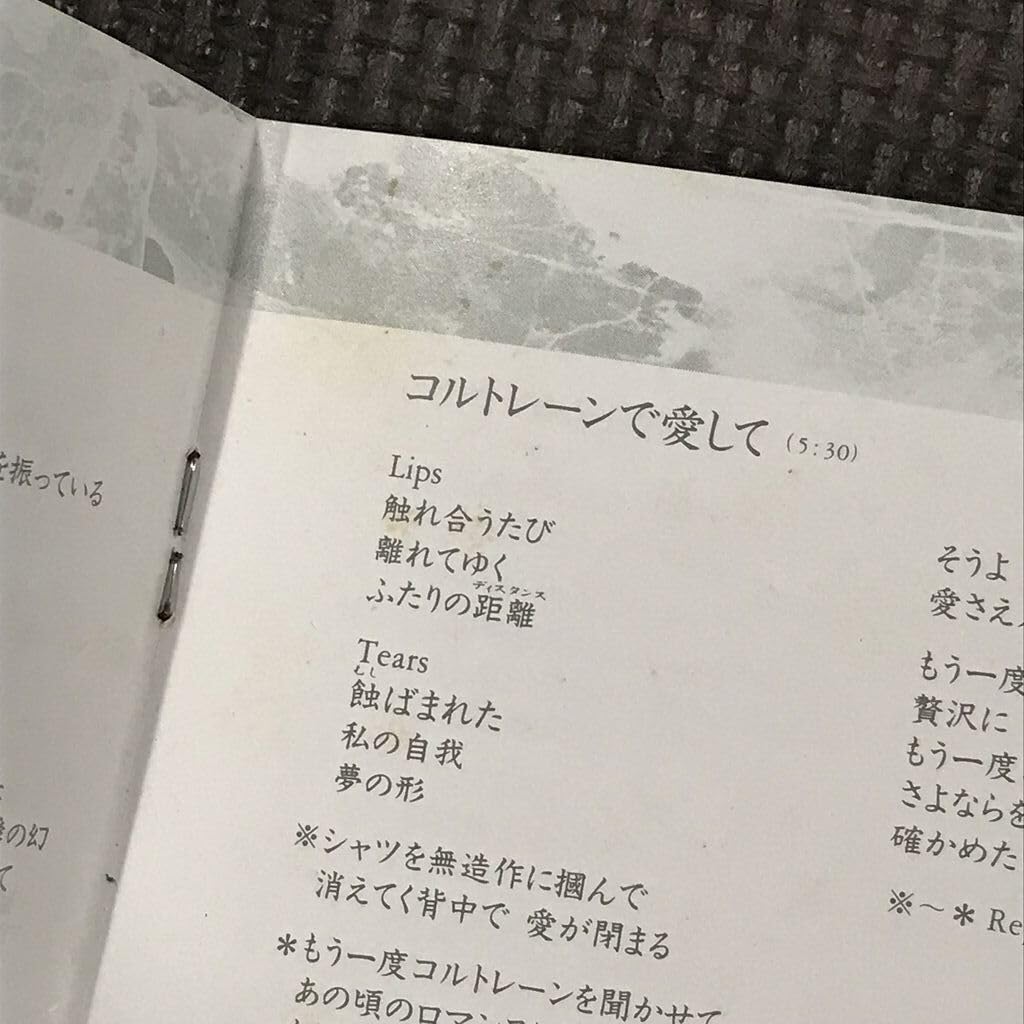 を振っている
の幻
て
コルトレーンで愛して (5:30)
Lips
触れ合うたび
離れてゆく
ディスタンス
ふたりの距離
Tears
むし
蝕ばまれた
私の自我
夢の形
※シャツを無造作に摑んで
消えてく背中で 愛が閉まる
＊もう一度コルトレーンを聞かせて
あの頃のロマンス
そうよ
愛さえ
もう一度
贅沢に
もう一度
さよならを
確かめた
※～＊ Re